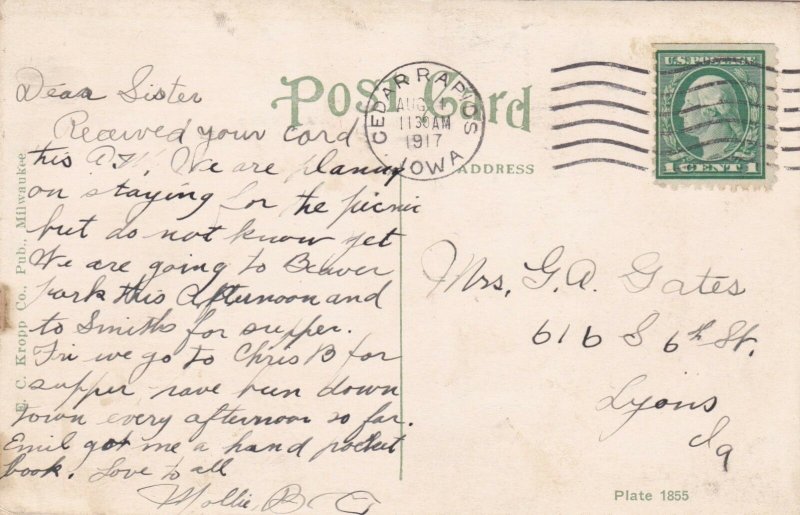 Post Card
CEDAR RAPIDS
AUG
1130AM
1917
IOWA
U.S. POSTAGE
1 CENT 1
ADDRESS
Dear Sister
Received your card
this We are planing
on staying for the picnic
but do not know yet
We are going to Beaver
Park this Afternoon and
to Smiths for supper.
Fri we go to Chris B for
supper have been down
town every afternoon so far.
Emil got me a hand pocket
book. Love to all
Mollie B
Mrs. G. A. Gates
616 S 6th St.
Lyons
Ia
E. C. Kropp Co., Pub., Milwaukee
Plate 1855